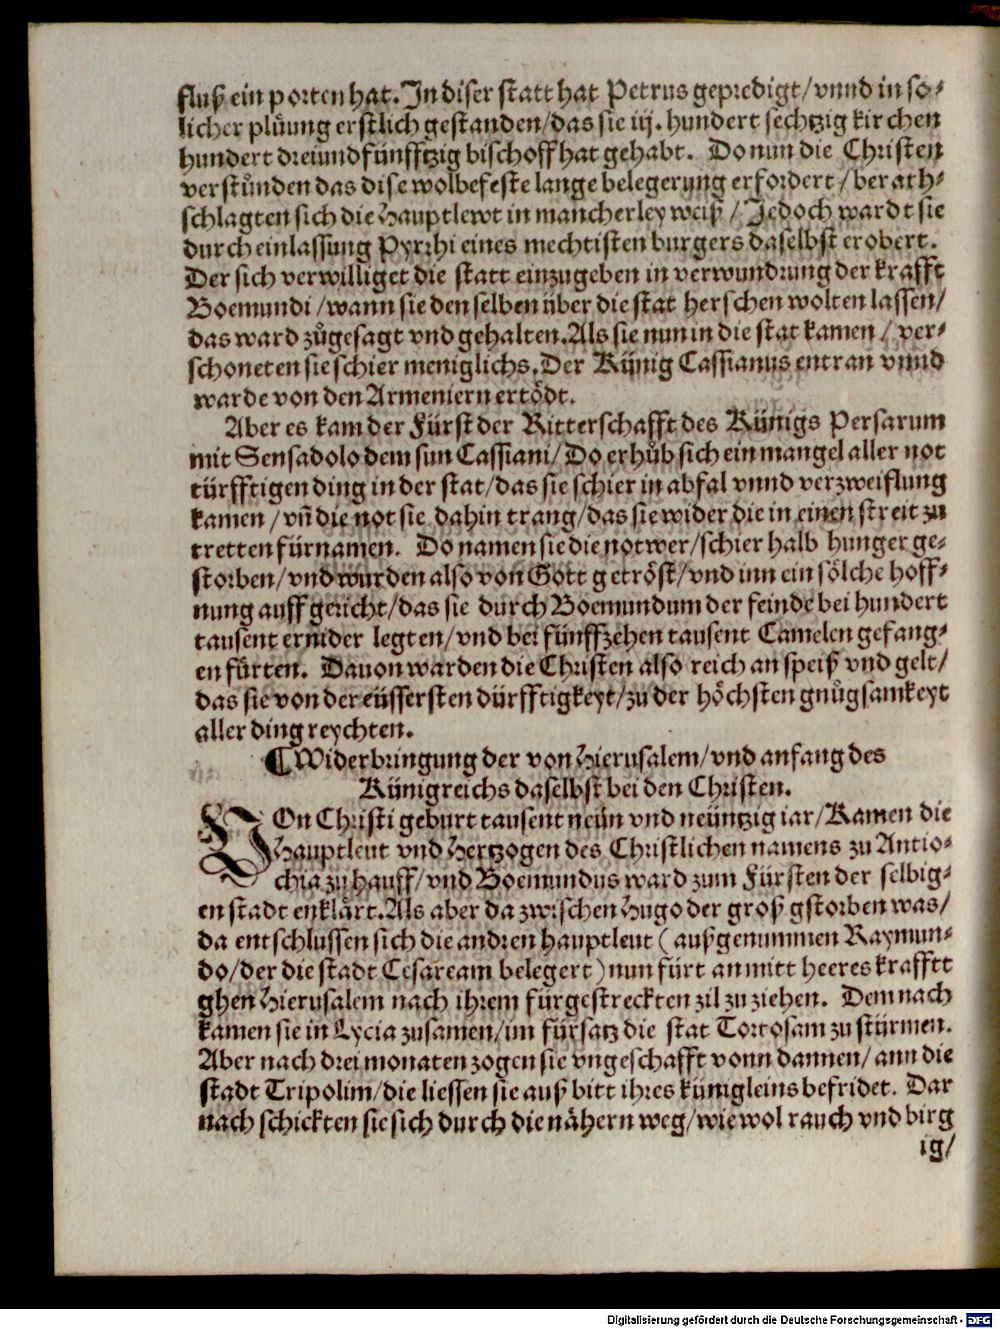 fluß ein porten hat. In diser statt hat Petrus gepredigt/ vnnd in so⸗
licher plůung erstlich gestanden/ das sie iij. hundert sechtzig kirchen
hundert dreiundfünfftzig bischoff hat gehabt. Do nun die Christen
verstůnden das dise wolbefeste lange belegerung erfordert/ berath⸗
schlagten sich die Hauptlewt in mancherley weiß/ Jedoch wardt sie
durch einlassung Pyrrhi eines mechtisten burgers daselbst erobert.
Der sich verwilliget die statt einzugeben in verwundrung der krafft
Boemundi/ wann sie den selben über die stat herschen wolten lassen/
das ward zůgesagt vnd gehalten. Als sie nun in die stat kamen/ ver⸗
schoneten sie schier meniglichs. Der Künig Cassianus entran vnnd
warde von den Armeniern ertödt.
Aber es kam der Fürst der Ritterschafft des Künigs Persarum
mit Sensadolo dem sun Cassiani/ Do erhůb sich ein mangel aller not
türfftigen ding in der stat/ das sie schier in abfal vnnd verzweiflung
kamen/ vñ die not sie dahin trang/ das sie wider die in einen streit zu
tretten fürnamen. Do namen sie die notwer/ schier halb hunger ge⸗
storben/ vnd wurden also von Gott getröst/ vnd inn ein sölche hoff⸗
nung auffgericht/ das sie durch Boemundum der feinde bei hundert
tausent ernider legten/ vnd bei fünffzehen tausent Camelen gefang⸗
en fürten. Dauon warden die Christen also reich an speiß vnd gelt/
das sie von der eüssersten dürfftigkeyt/ zu der höchsten gnůgsamkeyt
aller ding reychten.
¶ Widerbringung der von Hierusalem/ vnd anfang des
Künigreichs daselbst bei den Christen.
VOn Christi geburt tausent neün vnd neüntzig iar/ Kamen die
Hauptleut vnd Hertzogen des Christlichen namens zu Antio⸗
chia zu hauff/ vnd Boemundus ward zum Fürsten der selbig⸗
en stadt erklärt. Als aber da zwischen Hugo der groß gstorben was/
da entschlussen sich die andren hauptleut (außgenummen Raymun⸗
do/ der die stadt Cesaream belegert) nun fürt an mitt heeres krafftt
ghen Hierusalem nach ihrem fürgestreckten zil zu ziehen. Dem nach
kamen sie in Lycia zusamen/ im fürsatz die stat Tortosam zu stürmen.
Aber nach drei monaten zogen sie vngeschafft vonn dannen/ ann die
stadt Tripolim/ die liessen sie auß bitt ihres künigleins befridet. Dar
nach schickten sie sich durch die nähern weg/ wie wol rauch vnd birg
ig/
Digitalisierung gefördert durch die Deutsche Forschungsgemeinschaft - DFG